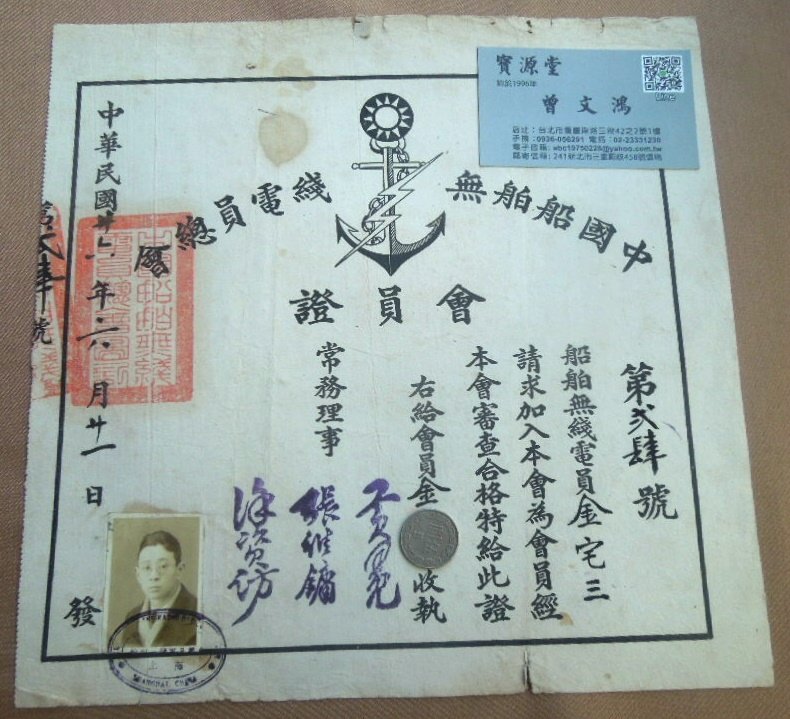 中國船舶無綫電員總會
會員證
第弍肆號
船舶無綫電員金宅三
請求加入本會為會員經
本會審查合格特給此證
右給會員金 收執
常務理事
張惟鏞
徐
中華民國廿六年六月廿一日
發
第 號
上海
SHANGHAI, CHINA
寶源堂
始於1996年
曾文鴻
Line
店址:台北市重慶南路三段42之2號1樓
手機:0936-056291 電話:02-23331230
電子信箱:abc19750226@yahoo.com.tw
郵寄信箱:241新北市三重郵政458號信箱